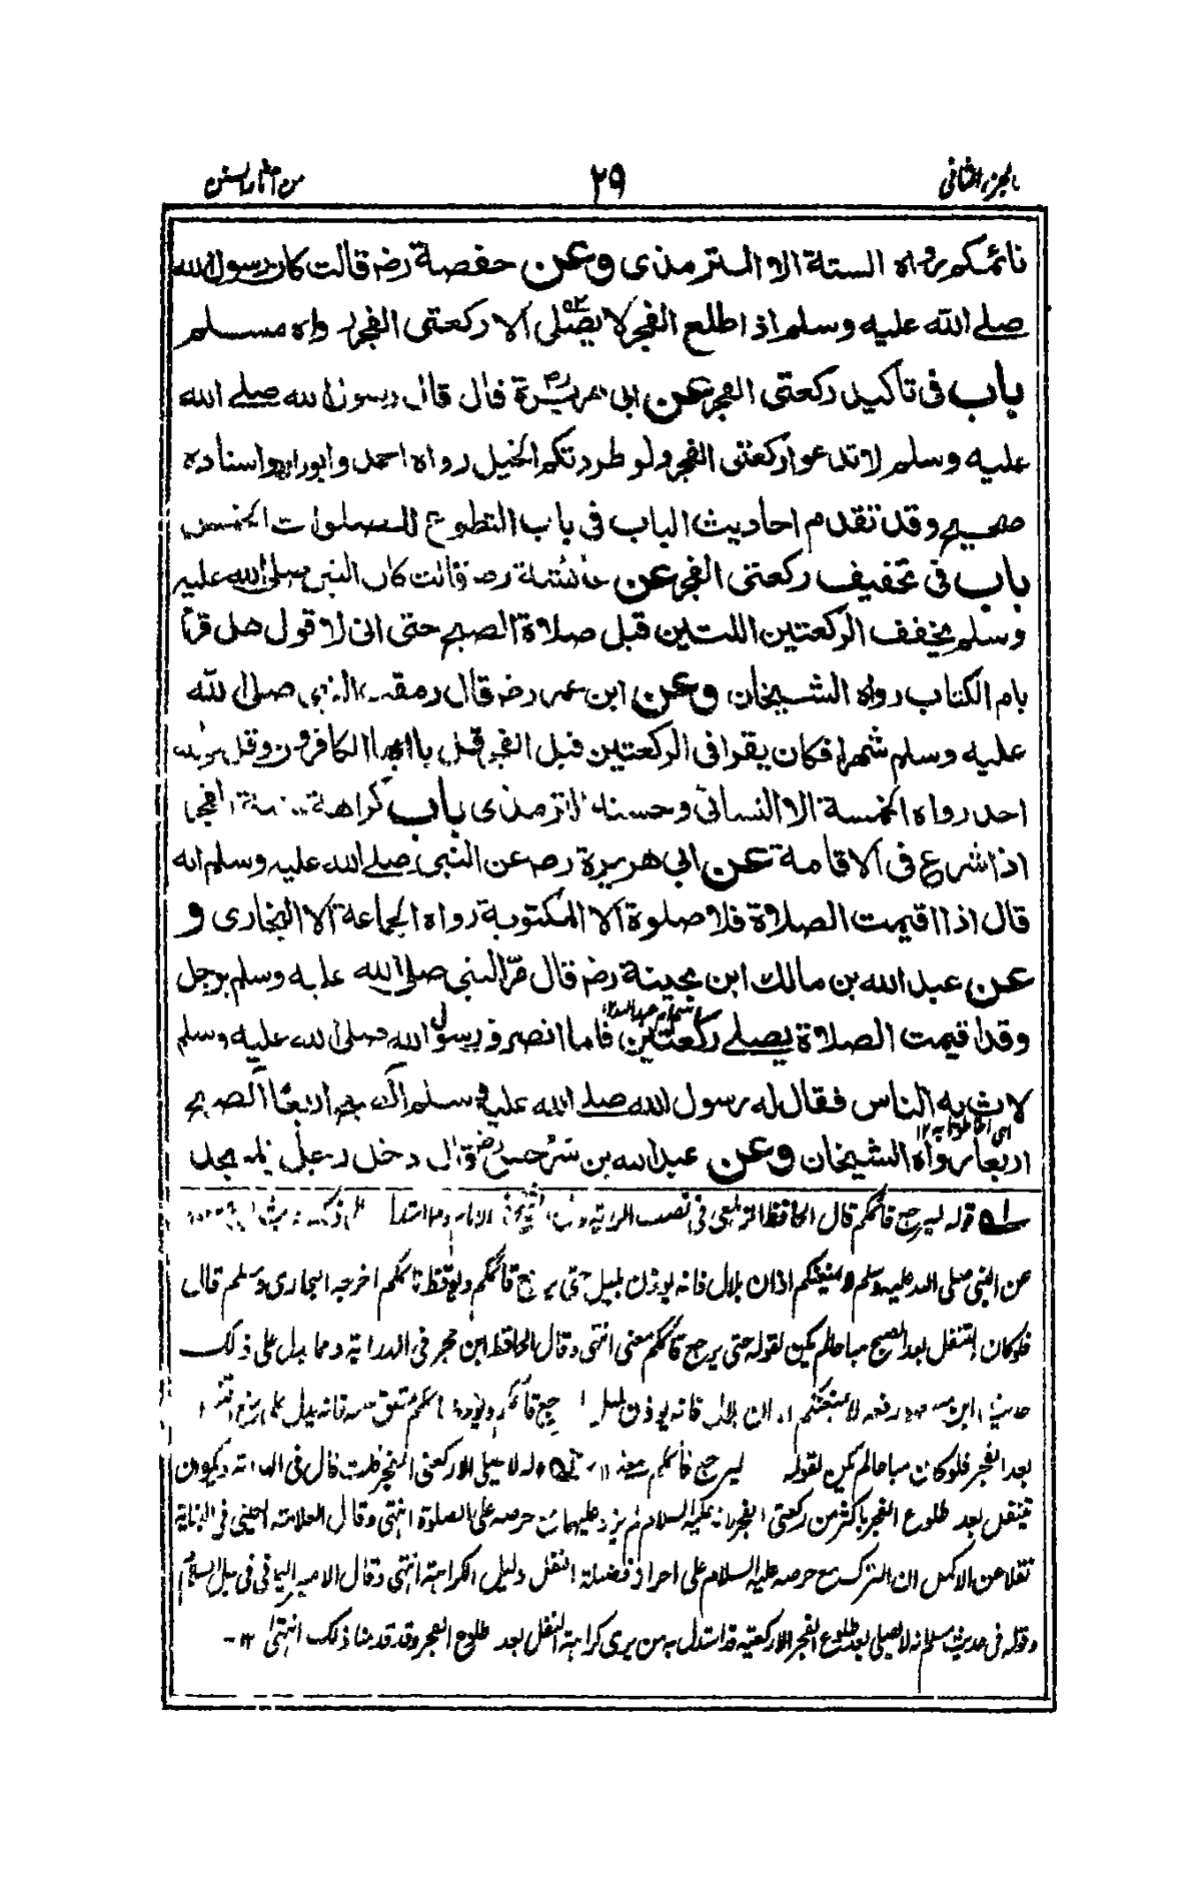 الجزء الثانی ٢٩ من آثار السنن
نائمكم رواه الستة الا الترمذی وعن حفصة رضـ قالت كان رسول الله
صلے الله عليه وسلم اذا طلع الفجر لا يصلی الا ركعتی الفجر رواه مسلم
باب فی تاكيد ركعتی الفجر عن ابی هريرة قال قال رسول الله صلے الله
عليه وسلم لا تدعوا ركعتی الفجر ولو طردتكم الخيل رواه احمد وابوداود واسناده
صحيح وقد تقدم احاديث الباب فی باب التطوع للصلوات الخمس
باب فی تخفيف ركعتی الفجر عن عائشة رضـ قالت كان النبی صلی الله عليه
وسلم يخفف الركعتين اللتين قبل صلاة الصبح حتی انی لا قول هل قرأ
بام الكتاب رواه الشيخان وعن ابن عمر رضـ قال رمقت النبی صلی الله
عليه وسلم شهرا فكان يقرا فی الركعتين قبل الفجر قل يا ايها الكافرون وقل هو الله
احد رواه الخمسة الا النسائی وحسنه الترمذی باب كراهة سنة الفجر
اذا شرع فی الاقامة عن ابی هريرة رضـ عن النبی صلے الله عليه وسلم انه
قال اذا اقيمت الصلاة فلا صلوة الا المكتوبة رواه الجماعة الا البخاری و
عن عبد الله بن مالك ابن بحينة رضـ قال مرّ النبی صلی الله عليه وسلم برجل
وقد اقيمت الصلاة يصلے ركعتين فلما انصرف رسول الله صلی الله عليه وسلم
لاث به الناس فقال له رسول الله صلے الله عليه وسلم الصبح اربعًا الصبح
اربعا رواه الشيخان وعن عبد الله بن سرجس رضـ قال دخل رجل المسجد
قوله ليرجع قائمكم قال الحافظ الزيلعی فی نصب الراية
عن النبی صلی الله عليه وسلم لا يمنعكم اذان بلال فانه يوذن بليل حتی يرجع قائمكم ويوقظ نائمكم اخرجه البخاری ومسلم قال
فلو كان التنفل بعد الصبح مباحا لم يكن لقوله حتی يرجع قائمكم معنی انتهی وقال الحافظ ابن حجر فی الدراية ومما يدل علی ذلك
حديث ابن مسعود رفعه لا يمنعكم اذان بلال فانه يوذن بليل ليرجع قائمكم
بعد الفجر فلو كان مباحا لم يكن لقوله ليرجع قائمكم معنی ١٢ قوله لا يصلی الا ركعتی الفجر قلت قال فی الهداية ويكره ان
يتنفل بعد طلوع الفجر باكثر من ركعتی الفجر لانه عليه السلام لم يزد عليهما مع حرصه علی الصلوة انتهی وقال العلامة العينی فی البناية
نقلا عن الاكمل ان الترك مع حرصه عليه السلام علی احراز فضيلة النفل دليل الكراهة انتهی وقال الامير اليمانی فی سبل السلام
وقوله فی حديث مسلم انه لا يصلی بعد طلوع الفجر الا ركعتيه قد استدل به من يری كراهة النفل بعد طلوع الفجر وقد قدمنا ذلك انتهی ١٢-